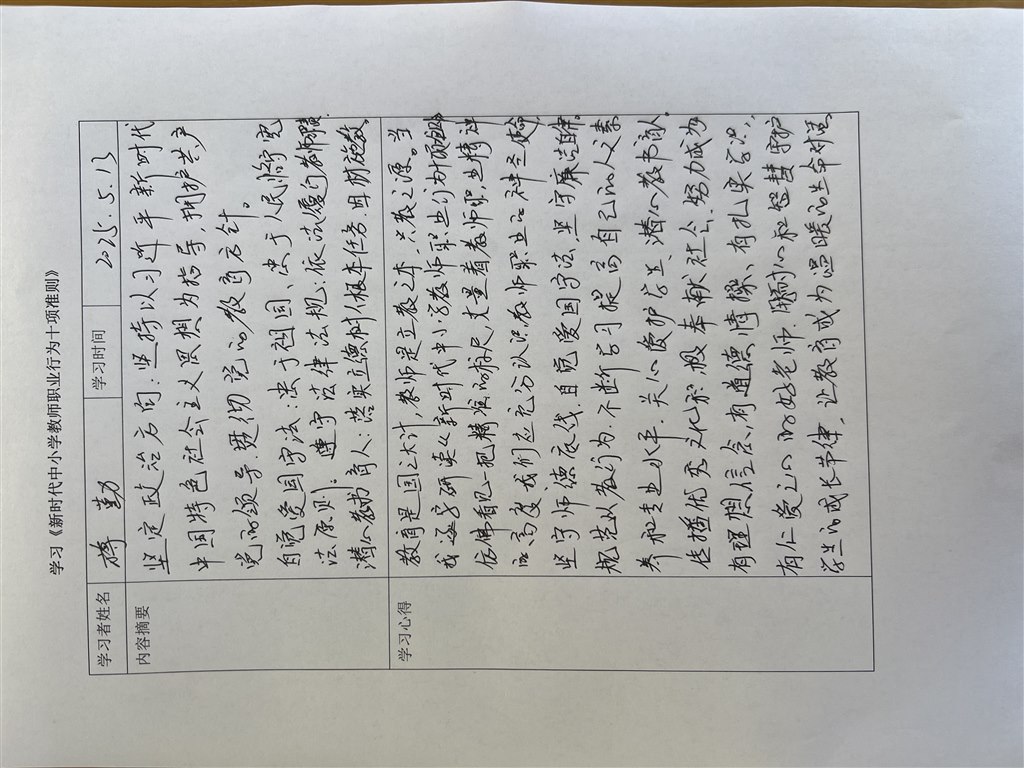 学习《新时代中小学教师职业行为十项准则》
学习者姓名 勤 学习时间 2025.5.13
内容摘要
坚定政治方向：坚持以习近平新时代
中国特色社会主义思想为指导，拥护共产
党的领导，贯彻党的教育方针。
自觉爱国守法：忠于祖国、忠于人民，
法原则。遵守法律法规：依法履行教师职
潜心教书育人：落实立德树人根本任务，因材施教。
学习心得
教育是国之大计，教师是立教之本，兴教之源。当
我研读《新时代中小学教师职业行为
仿佛看见一把精准的标尺，丈量着教师职业精神
的高度，我们应充分认识教师职业的神圣
坚守师德底线，自觉爱国守法，坚守廉洁自律。
规范从教行为，不断学习提高自己的人文素
养和专业水平，关心爱护学生，潜心教书育人。
传播优秀文化，积极奉献社会，努力成为
有理想信念，有道德情操、有扎实学识，
有仁爱之心的好老师。用耐心和智慧守护
学生的成长节律，让教育成为温暖的生命对话。